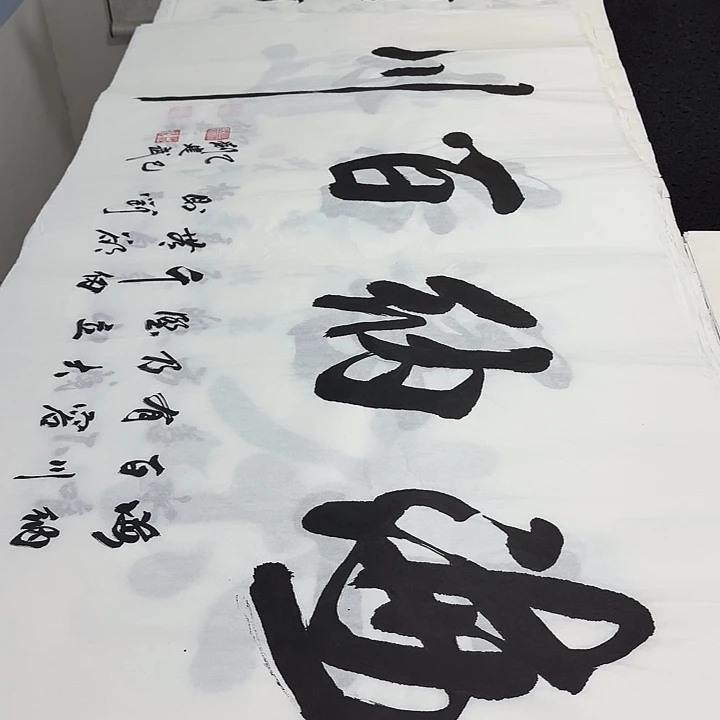 海纳百川
海纳
百川
有容
乃大
壁立
千仞
無欲
则刚
乙巳